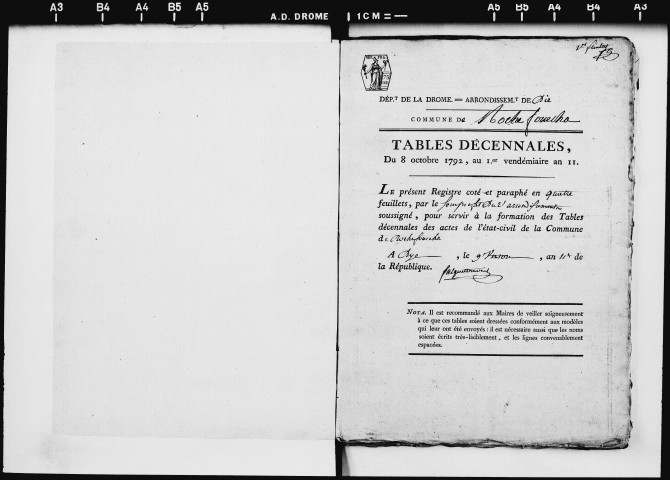 A3 B4 A4 B5 A5 A.D. DROME 1 CM = A5 B5 A4 B4 A3
DÉP.T DE LA DROME. — ARRONDISSEM.T DE Die
COMMUNE DE Rochefourcha
TABLES DÉCENNALES,
Du 8 octobre 1792, au 1.er vendémiaire an 11.
LE présent Registre coté et paraphé en quatre
feuillets, par le
soussigné, pour servir à la formation des Tables
décennales des actes de l'état-civil de la Commune
de
A Dye , le 9 , an 11e de
la République.
NOTA. Il est recommandé aux Maires de veiller soigneusement
à ce que ces tables soient dressées conformément aux modèles
qui leur ont été envoyés : il est nécessaire aussi que les noms
soient écrits très-lisiblement, et les lignes convenablement
espacées.